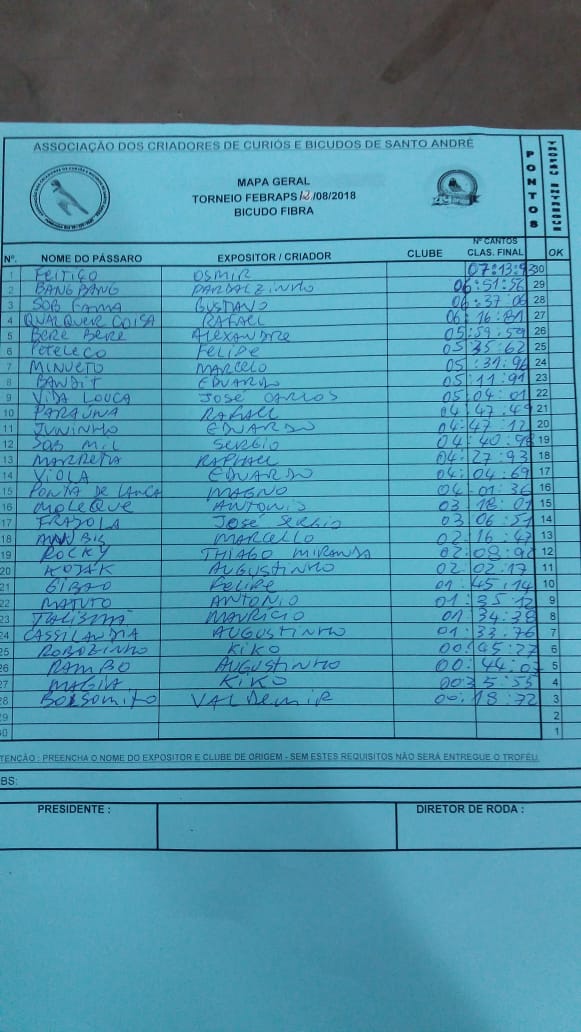 ASSOCIAÇÃO DOS CRIADORES DE CURIÓS E BICUDOS DE SANTO ANDRÉ
MAPA GERAL
TORNEIO FEBRAPS 12/08/2018
BICUDO FIBRA
PONTOS
Nº. NOME DO PÁSSARO EXPOSITOR / CRIADOR CLUBE Nº CANTOS CLAS. FINAL OK
1 FEITIÇO OSMIR 07:13:93 30
2 BANG BANG PARDALZINHO 06:51:56 29
3 SOB FAMA GUSTAVO 06:37:06 28
4 QUALQUER COISA RAFAEL 06:16:81 27
5 BERE BERE ALEXANDRE 05:59:59 26
6 PETELECO FELIPE 05:35:62 25
7 MINUETO MARCELO 05:31:96 24
8 BANDIT EDUARDO 05:11:91 23
9 VIDA LOUCA JOSÉ CARLOS 05:04:01 22
10 PARAUNA RAFAEL 04:47:49 21
11 JUNINHO EDUARDO 04:47:12 20
12 SOB MIL SERGIO 04:40:98 19
13 MARRETA RAPHAEL 04:27:93 18
14 VIOLA EDUARDO 04:04:69 17
15 PONTA DE LANÇA MAGNO 04:01:36 16
16 MOLEQUE ANTONIO 03:18:01 15
17 FRAJOLA JOSÉ SERGIO 03:06:51 14
18 BIG MARCELLO 02:16:47 13
19 ROCKY THIAGO MIRANDA 02:08:92 12
20 KOJAK AUGUSTINHO 02:02:17 11
21 GIBÃO FELIPE 01:45:14 10
22 MATUTO ANTONIO 01:35:12 9
23 TALISMÃ MAURICIO 01:34:38 8
24 CASSILANDIA AUGUSTINHO 01:33:76 7
25 ROBOZINHO KIKO 00:45:27 6
26 RAMBO AUGUSTINHO 00:44:07 5
27 MAGIA KIKO 00:35:55 4
28 BOLSOMITO VALDEMIR 00:18:72 3
29 2
30 1
ATENÇÃO : PREENCHA O NOME DO EXPOSITOR E CLUBE DE ORIGEM - SEM ESTES REQUISITOS NÃO SERÁ ENTREGUE O TROFÉU.
OBS:
PRESIDENTE : DIRETOR DE RODA :